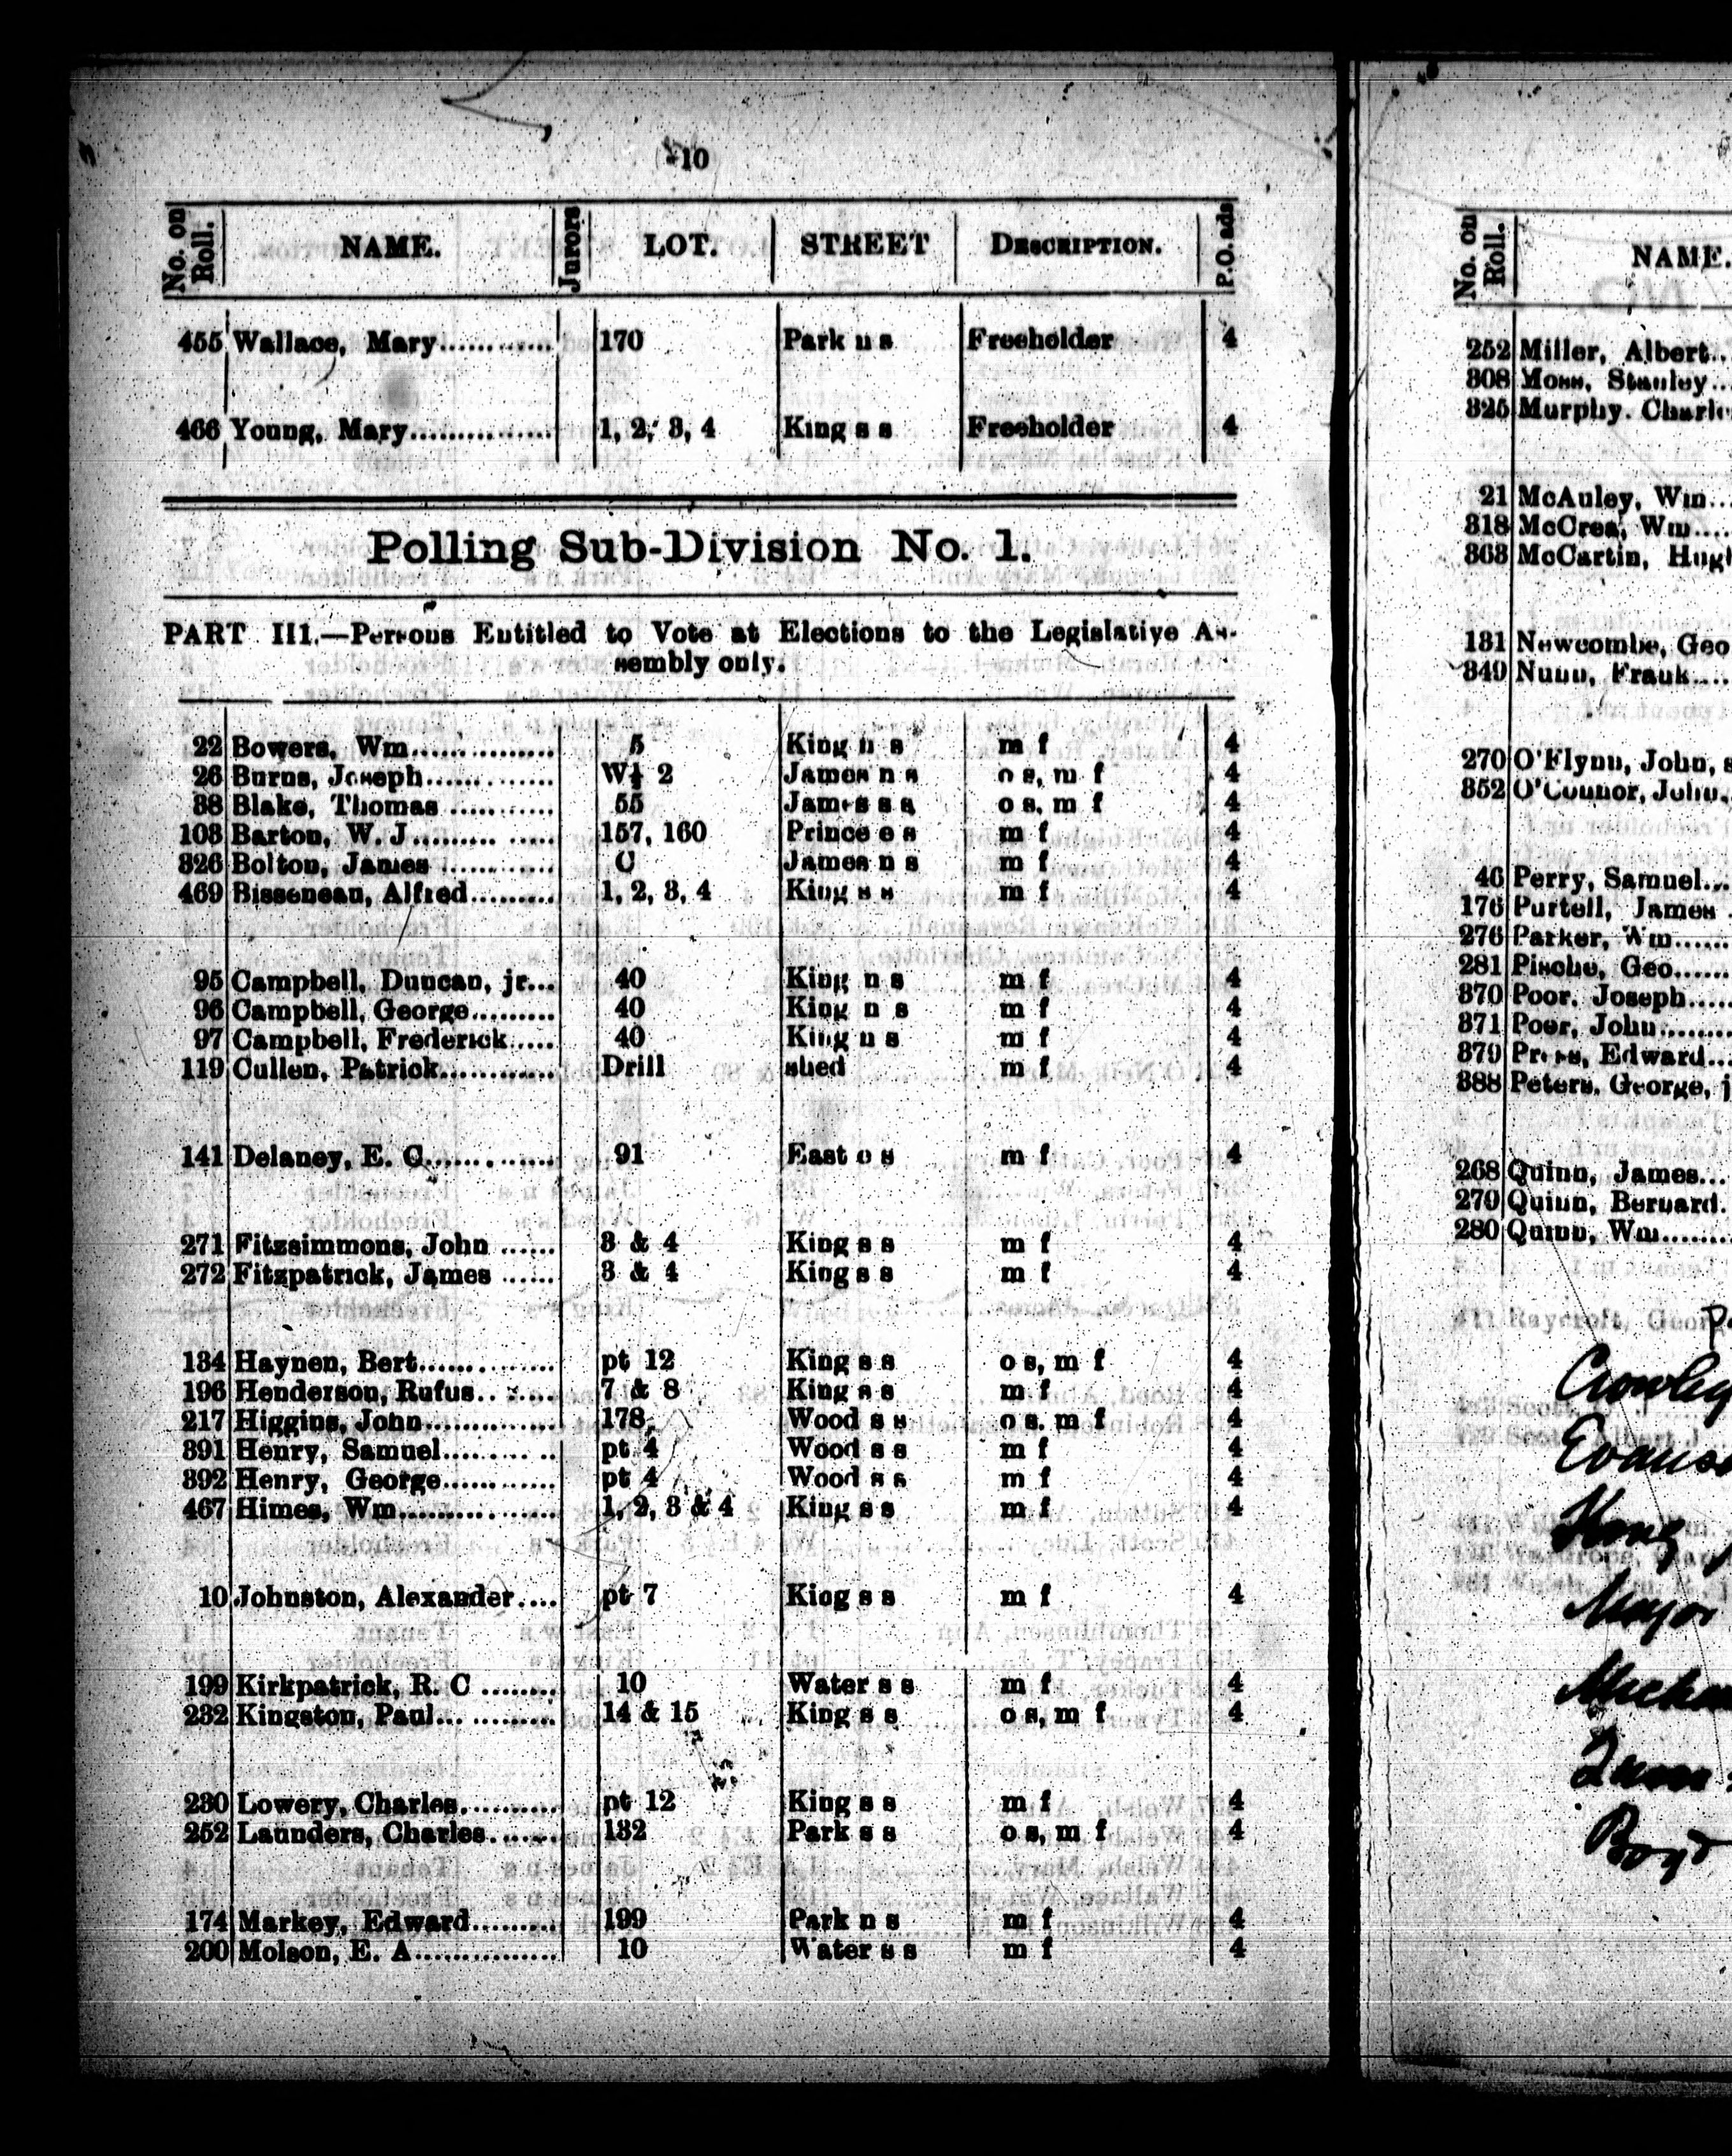 10
No. on Roll. NAME. Jurors LOT. STREET DESCRIPTION. P.O. ads
455 Wallace, Mary............ 170 Park n s Freeholder 4
466 Young, Mary............... 1, 2, 3, 4 King s s Freeholder 4
Polling Sub-Division No. 1.
PART III.—Persons Entitled to Vote at Elections to the Legislative As-
sembly only.
22 Bowers, Wm............... 5 King n s m f 4
26 Burns, Joseph............. W½ 2 James n s o s, m f 4
38 Blake, Thomas ........... 55 James s s o s, m f 4
103 Barton, W. J......... ..... 157, 160 Prince e s m f 4
326 Bolton, James ............ C James n s m f 4
469 Bisseneau, Alfred......... 1, 2, 3, 4 King s s m f 4
95 Campbell, Duncan, jr... 40 King n s m f 4
96 Campbell, George......... 40 King n s m f 4
97 Campbell, Frederick..... 40 King n s m f 4
119 Cullen, Patrick............ Drill shed m f 4
141 Delaney, E. G............. 91 East e s m f 4
271 Fitzsimmons, John ...... 3 & 4 King s s m f 4
272 Fitzpatrick, James ...... 3 & 4 King s s m f 4
134 Haynen, Bert.............. pt 12 King s s o s, m f 4
196 Henderson, Rufus........ 7 & 8 King s s m f 4
217 Higgins, John............. 178 Wood s s o s, m f 4
391 Henry, Samuel......... .. pt 4 Wood s s m f 4
392 Henry, George............ pt 4 Wood s s m f 4
467 Himes, Wm................ 1, 2, 3 & 4 King s s m f 4
10 Johnston, Alexander.... pt 7 King s s m f 4
199 Kirkpatrick, R. C ........ 10 Water s s m f 4
232 Kingston, Paul... ......... 14 & 15 King s s o s, m f 4
230 Lowery, Charles.......... pt 12 King s s m f 4
252 Launders, Charles....... 132 Park s s o s, m f 4
174 Markey, Edward......... 199 Park n s m f 4
200 Molson, E. A............... 10 Water s s m f 4
No. on Roll. NAME.
252 Miller, Albert..
308 Moss, Stanley...
325 Murphy. Charle
21 McAuley, Wm...
318 McCrea, Wm....
363 McCartin, Hugh
131 Newcombe, Geo
349 Nunn, Frank....
270 O'Flynn, John, s
352 O'Connor, John.
46 Perry, Samuel...
176 Purtell, James
276 Parker, Wm......
281 Pische, Geo......
370 Poor, Joseph.....
371 Poor, John........
379 Press, Edward...
388 Peters, George, j
268 Quinn, James...
279 Quinn, Bernard.
280 Quinn, Wm........
Crowley
Evans
King
Major
Boyd